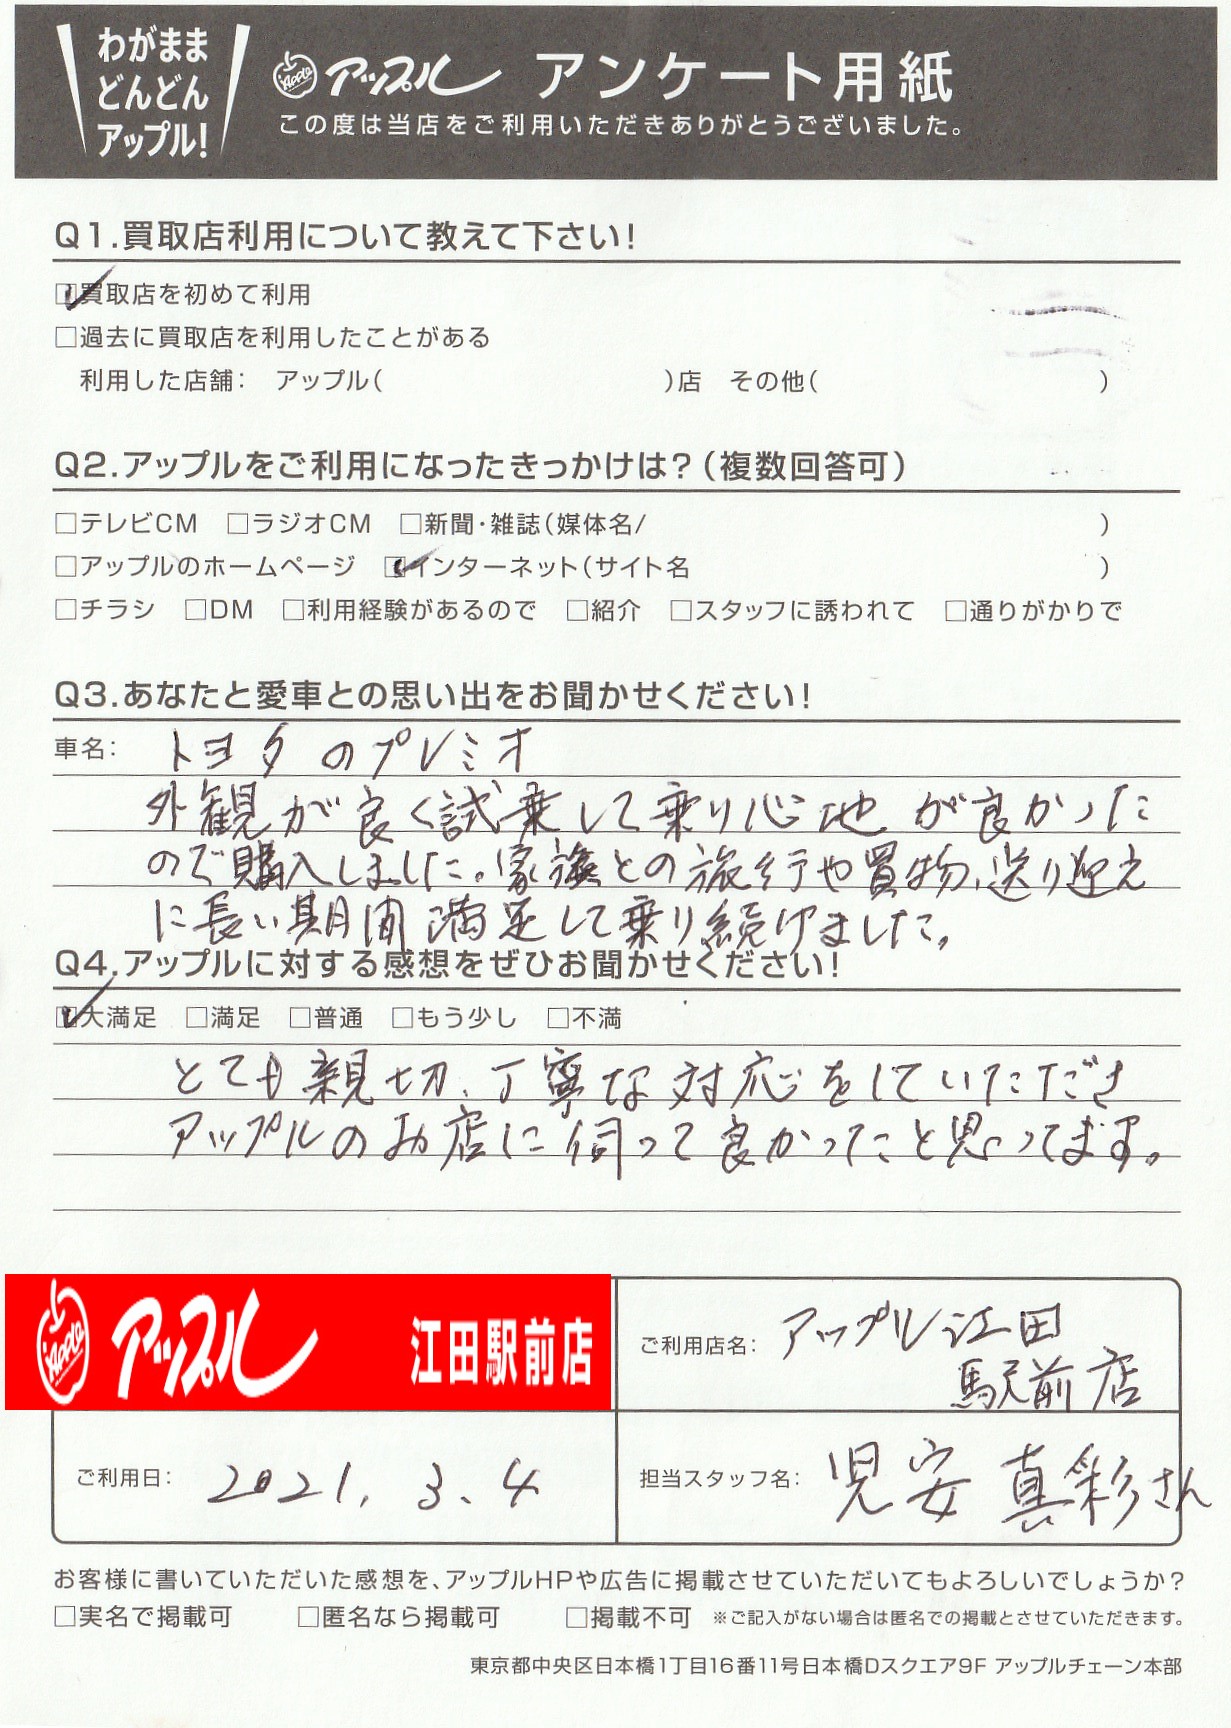 わがまま
どんどん
アップル!
Apple アップル アンケート用紙
この度は当店をご利用いただきありがとうございました。
Q1.買取店利用について教えて下さい!
☑買取店を初めて利用
□過去に買取店を利用したことがある
利用した店舗: アップル( )店 その他( )
Q2.アップルをご利用になったきっかけは?(複数回答可)
□テレビCM □ラジオCM □新聞・雑誌(媒体名/ )
□アップルのホームページ ☑インターネット(サイト名 )
□チラシ □DM □利用経験があるので □紹介 □スタッフに誘われて □通りがかりで
Q3.あなたと愛車との思い出をお聞かせください!
車名: トヨタのプレミオ
外観が良く試乗して乗り心地が良かった
ので購入しました。家族との旅行や買物、送り迎え
に長い期間満足して乗り続けました。
Q4.アップルに対する感想をぜひお聞かせください!
☑大満足 □満足 □普通 □もう少し □不満
とても親切、丁寧な対応をしていただき
アップルのお店に伺って良かったと思ってます。
Apple アップル 江田駅前店
ご利用店名: アップル江田
駅前店
ご利用日: 2021. 3. 4
担当スタッフ名: 児安 真彩さん
お客様に書いていただいた感想を、アップルHPや広告に掲載させていただいてもよろしいでしょうか?
□実名で掲載可 □匿名なら掲載可 □掲載不可 ※ご記入がない場合は匿名での掲載とさせていただきます。
東京都中央区日本橋1丁目16番11号日本橋Dスクエア9F アップルチェーン本部